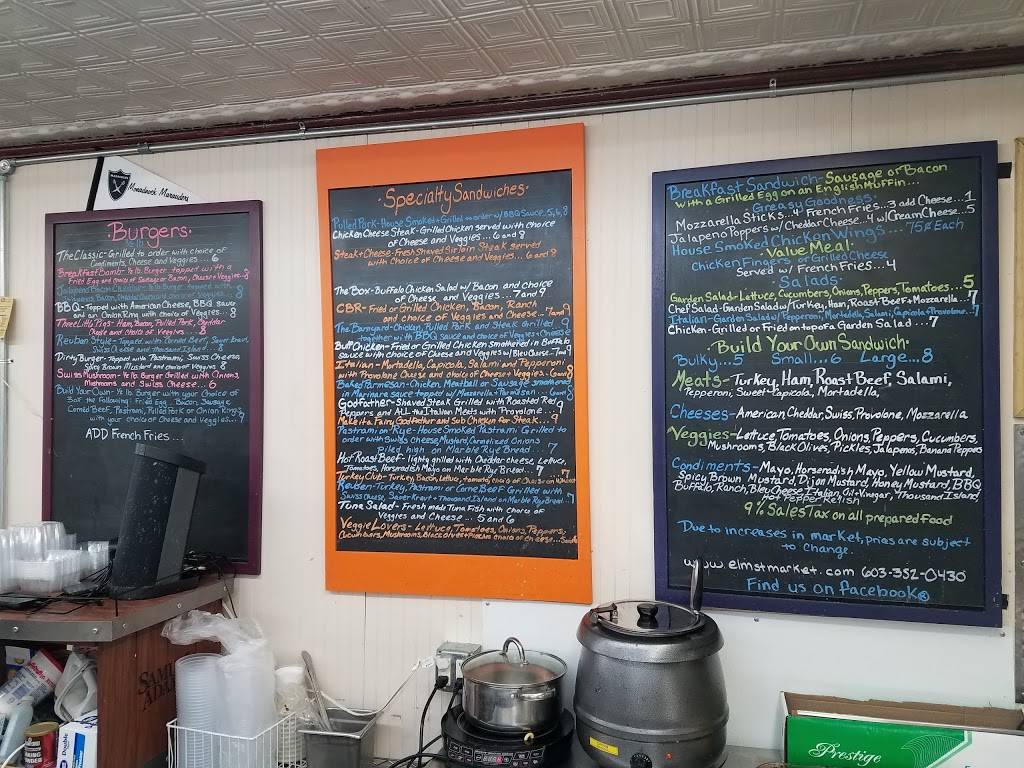 Monadnock Marauders
Burgers
The Classic-Grilled to order with choice of
Condiments, Cheese and Veggies... 6
Breakfast Bomb- ½ lb. Burger topped with a
Fried Egg and choice of Sausage or Bacon, Cheese & Veggies..8
BBQ-Topped with American Cheese, BBQ Sauce
and an Onion Ring with choice of Veggies... 8
Three Little Pigs- Ham, Bacon, Pulled Pork,
Cheese and choice of Veggies... 8
Reuben Style-Topped with Corned Beef, Sauer Kraut,
Swiss Cheese and Thousand Island... 8
Dirty Burger-Topped with Pastrami, Swiss Cheese,
Spicy Brown Mustard and choice of Veggies... 8
Swiss Mushroom- ½ lb. Burger Grilled with Onions,
Mushrooms and Swiss Cheese... 6
Build Your Own- ½ lb. Burger with your Choice of
Fried Egg, Bacon, Sausage,
Corned Beef, Pastrami, Pulled Pork or Onion Rings
with your choice of Cheese and Veggies... 7
ADD French Fries...
Specialty Sandwiches
Pulled Pork-House Smoked + Grilled to order w/BBQ Sauce..5,6,8
Chicken Cheese Steak-Grilled Chicken served with choice
of Cheese and Veggies... 6 and 8
Steak + Cheese-Fresh Shaved Sirloin Steak served
with choice of Cheese and Veggies... 6 and 8
The Box-Buffalo Chicken Salad w/ Bacon and choice
of Cheese and Veggies... 7 and 9
CBR-Fried or Grilled Chicken, Bacon, Ranch
and choice of Cheese and Veggies... 7 and 9
The Barnyard-Chicken, Pulled Pork and Steak Grilled 9
together with BBQ sauce and choice of Veggies + Cheese
Butt Chicken-Fried or Grilled Chicken Smothered in Buffalo
sauce with choice of Cheese and Veggies w/ Bleu Cheese..7 and 9
Italian-Mortadella, Capicola, Salami and Pepperoni
with Provolone Cheese and choice of Cheese + Veggies..6 and 8
Baked Parmesan-Chicken, Meatball or Sausage smothered
in Marinara sauce topped w/ Mozzarella + Parmesan...6 and 8
Godfather-Shaved Steak Grilled with Roasted Red
Peppers and ALL the Italian Meats with Provolone... 9
Make it a Fairy Godfather and Sub Chicken for Steak... 9
Pastrami on Rye-House Smoked Pastrami Grilled to
order with Swiss Cheese, Mustard, Carmelized Onions
Piled high on Marble Rye Bread... 7
Hot Roast Beef- lightly grilled with Cheddar cheese, Lettuce,
Tomatoes, Horseradish Mayo on Marble Rye Bread... 7
Turkey Club-Turkey, Bacon, Lettuce, tomato, choice of Cheese on
Reuben-Turkey, Pastrami or Corned Beef Grilled with
Swiss Cheese, Sauer Kraut + Thousand Island on Marble Rye Bread 7
Tuna Salad- Fresh made Tuna Fish with choice of
Veggies and Cheese ... 5 and 6
Veggie Lovers- Lettuce, Tomatoes, Onions, Peppers,
Cucumbers, Mushrooms, Black Olives + Pickles choice of cheese...
Breakfast Sandwich-Sausage or Bacon
with a Grilled Egg on an English Muffin...
Greasy Goodness
Mozzarella Sticks..4 French Fries..3 add Cheese..1
Jalapeno Poppers w/ Cheddar Cheese..4 w/ Cream Cheese..5
House Smoked Chicken Wings... 75¢ Each
Value Meal:
Chicken Fingers or Grilled Cheese
Served w/ French Fries..4
Salads
Garden Salad-Lettuce, Cucumbers, Onions, Peppers, Tomatoes...5
Chef Salad-Garden Salad w/ Turkey, Ham, Roast Beef + Mozzarella..7
Italian-Garden Salad w/ Pepperoni, Mortadella, Salami, Capicola + Provolone..7
Chicken-Grilled or Fried on top of a Garden Salad ...7
Build Your Own Sandwich.
Bulky...5 Small...6 Large...8
Meats-Turkey, Ham, Roast Beef, Salami,
Pepperoni, Sweet Capicola, Mortadella,
Cheeses-American, Cheddar, Swiss, Provolone, Mozzarella
Veggies-Lettuce, Tomatoes, Onions, Peppers, Cucumbers,
Mushrooms, Black Olives, Pickles, Jalapenos, Banana Peppers
Condiments-Mayo, Horseradish Mayo, Yellow Mustard,
Spicy Brown Mustard, Dijon Mustard, Honey Mustard, BBQ
Buffalo, Ranch, Bleu Cheese, Italian, Oil + Vinegar, Thousand Island
Pepper Relish
9% Sales Tax on all prepared food
Due to increases in market, prices are subject
to change.
www.elmstmarket.com 603-352-0430
Find us on facebook®
SAMUEL
ADAMS
Prestige